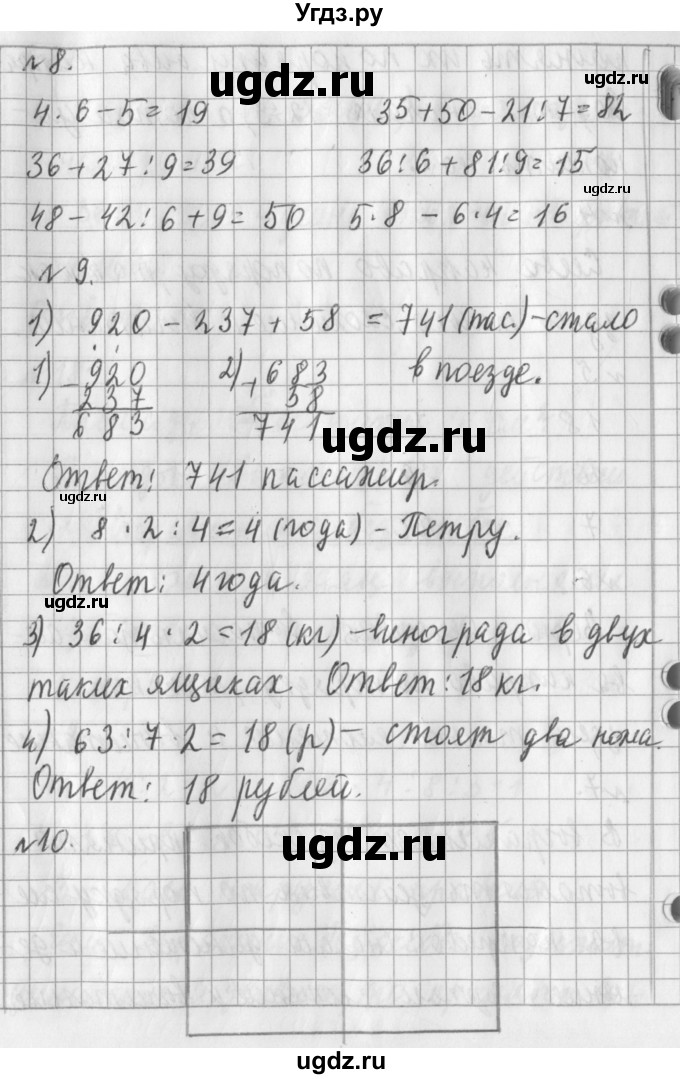 Угдз.ру
№8.
ugdz.ru
4·6-5=19 35+50-21:7=82
36+27:9=39 36:6+81:9=15
ugdz.ru
48-42:6+9=50 5·8-6·4=16
№9.
1) 920-237+58=741(пас.)-стало
в поезде.
1) -920
237
683
2) +683
58
741
ugdz.ru
Ответ: 741 пассажир.
ugdz.ru
2) 8·2:4=4(года)-Петру.
Ответ: 4 года.
ugdz.ru
3) 36:4·2=18(кг)-винограда в двух
таких ящиках. Ответ: 18 кг.
ugdz.ru
4) 63:7·2=18(р)-стоят два
Ответ: 18 рублей.
№10.
ugdz.ru
ugdz.ru